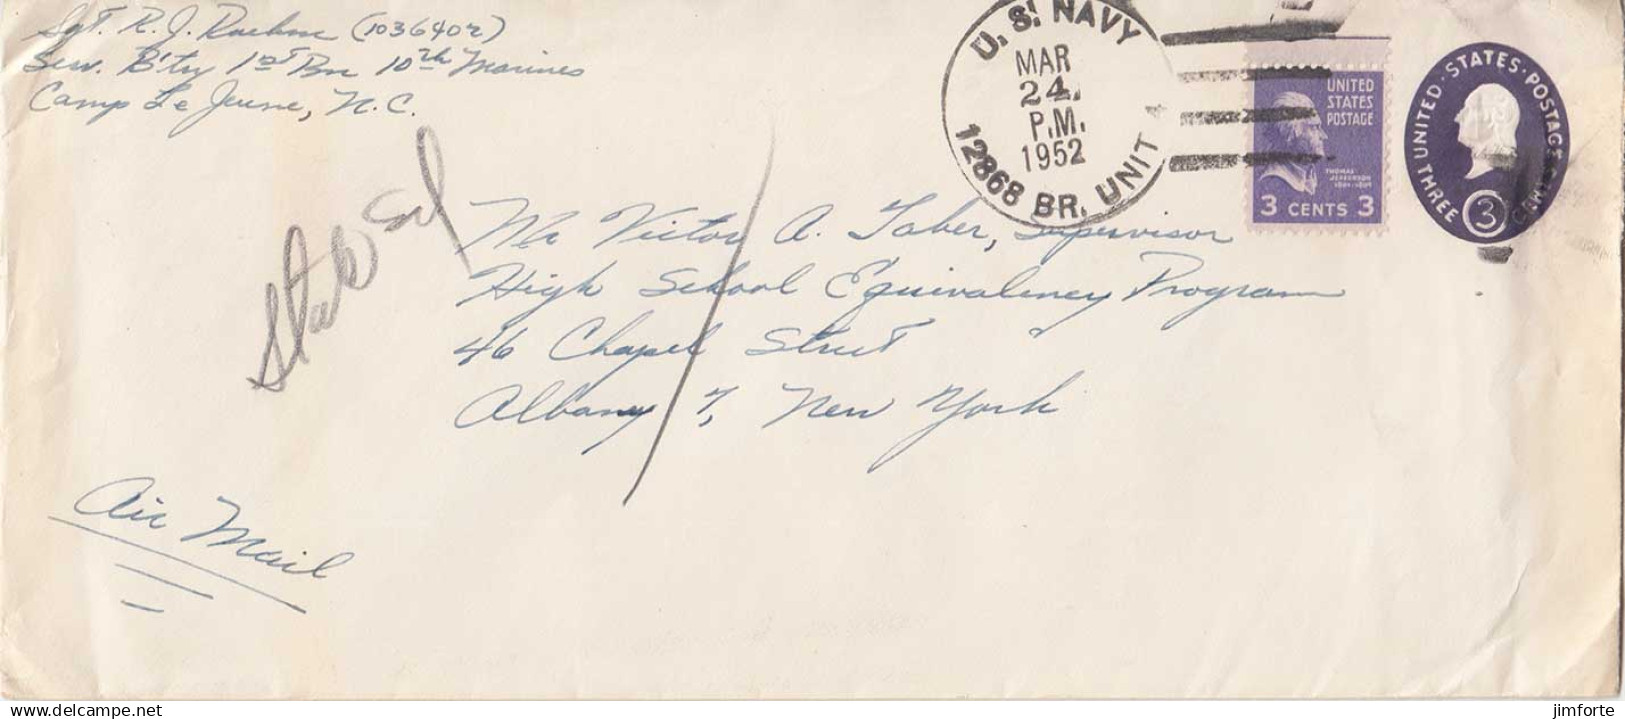 Sgt. R. J. Raehm (1036402)
Serv. B'try 1st Bn 10th Marines
Camp Le Jeune, N.C.
U.S. NAVY
MAR
24
P.M.
1952
12868 BR. UNIT
UNITED
STATES
POSTAGE
THOMAS
JEFFERSON
1801-1809
3 CENTS 3
UNITED·STATES·POSTAGE
THREE 3 CENTS
State Ed
Mr Victor A. Taber, Supervisor
High School Equivalency Program
46 Chapel Street
Albany 7, New York
Air Mail
delcampe.net
jimforte